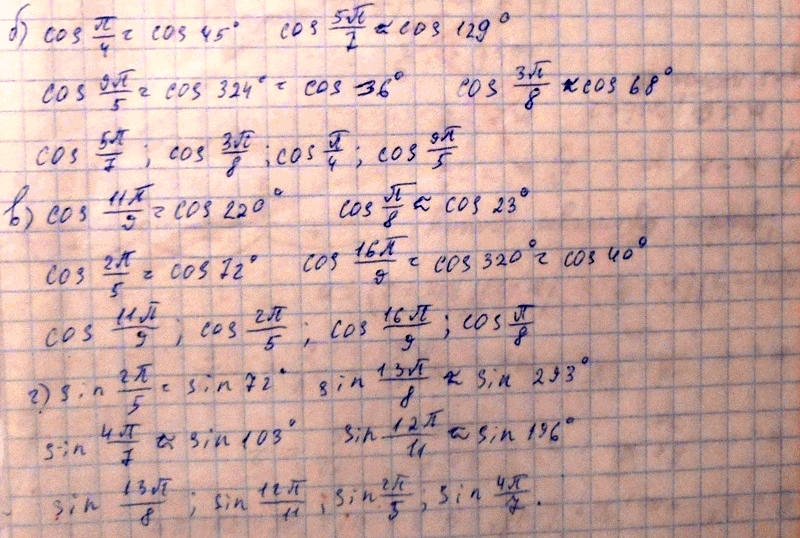 б) cos π/4 = cos 45° cos 5π/7 ≈ cos 129°
cos 9π/5 = cos 324° = cos 36° cos 3π/8 ≈ cos 68°
cos 5π/7 ; cos 3π/8 ; cos π/4 ; cos 9π/5
в) cos 11π/9 = cos 220° cos π/8 ≈ cos 23°
cos 2π/5 = cos 72° cos 16π/9 = cos 320° = cos 40°
cos 11π/9 ; cos 2π/5 ; cos 16π/9 ; cos π/8
г) sin 2π/5 = sin 72° sin 13π/8 ≈ sin 293°
sin 4π/7 ≈ sin 103° sin 12π/11 ≈ sin 196°
sin 13π/8 ; sin 12π/11 ; sin 2π/5 ; sin 4π/7.